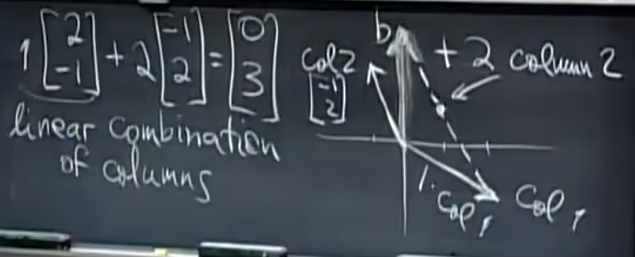 1 [2 -1] + 2 [-1 2] = [0 3]
linear combination
of columns
col 2
[-1 2]
b
+2 column 2
1. col 1
col 1